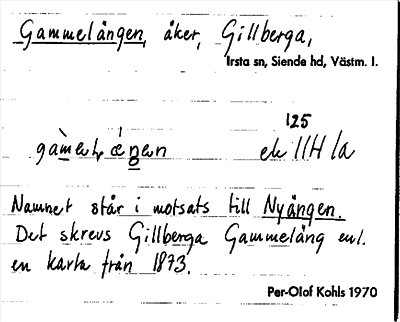 Gammelängen, åker, Gillberga,
Irsta sn, Siende hd, Västm. l.
125
ek 11H 1a
Namnet står i motsats till Nyängen.
Det skrevs Gillberga Gammeläng enl.
en karta från 1873.
Per-Olof Kohls 1970